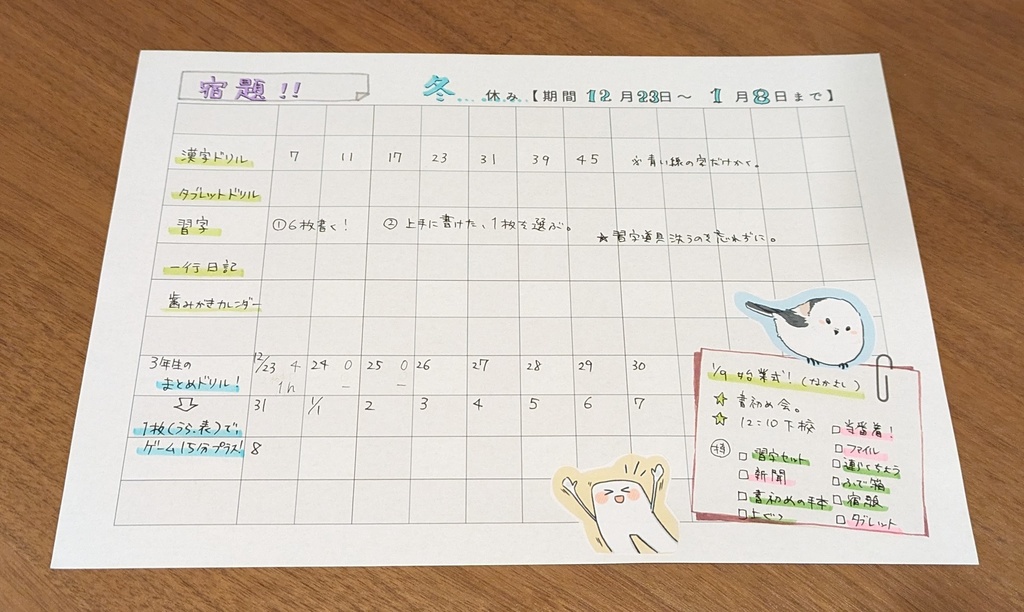 宿題!!
冬休み【期間 12月23日～ 1月8日まで】
漢字ドリル 7 11 17 23 31 39 45 ※青い線の字だけかく。
タブレットドリル
習字 ①6枚書く! ②上手に書けた、1枚を選ぶ。 ★習字道具洗うのを忘れずに。
一行日記
歯みがきカレンダー
3年生の
まとめドリル!
⇩
1枚(うら、表)で、
ゲーム15分プラス!
12/23 4 24 0 25 0 26 27 28 29 30
1h - -
31 1/1 2 3 4 5 6 7
8
1/9 始業式! (なかよし)
☆ 書初め会。
☆ 12:10下校
持
□ 習字セット
□ 新聞
□ 書初めの手本
□ 上ぐつ
□ 当番着!
□ ファイル
□ 連らくちょう
□ ふで箱
□ 宿題
□ タブレット